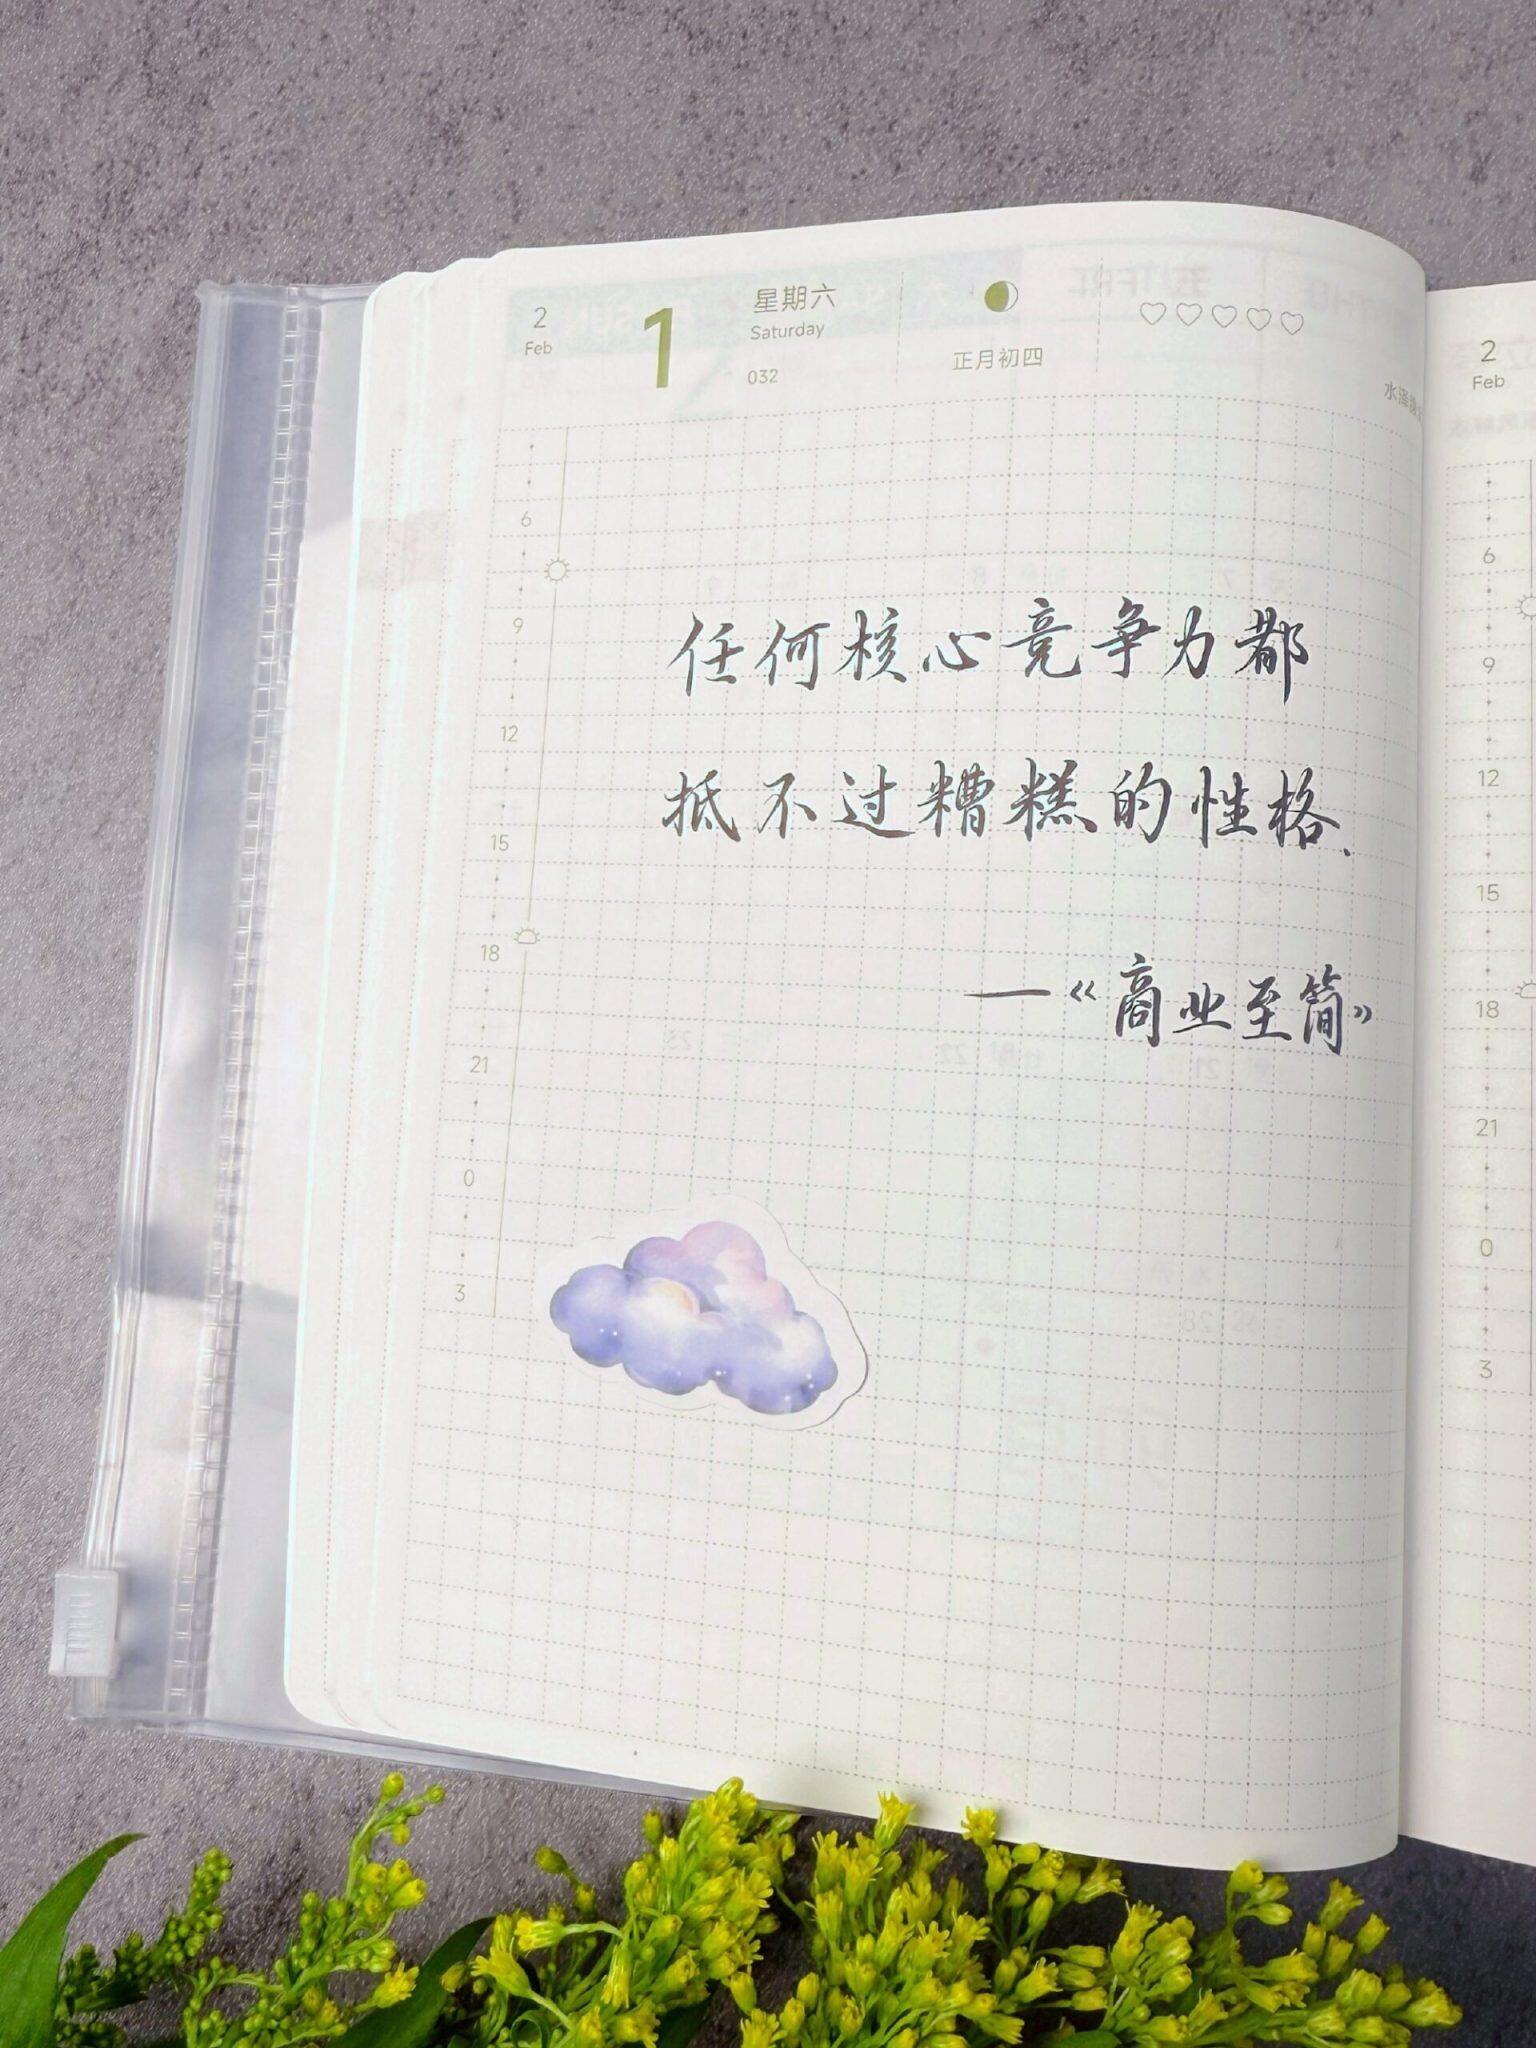 2
Feb
1
星期六
Saturday
032
正月初四
6
9
12
15
18
21
0
3
任何核心竞争力都
抵不过糟糕的性格.
—《商业至简》
2
Feb
6
9
12
15
18
21
0
3